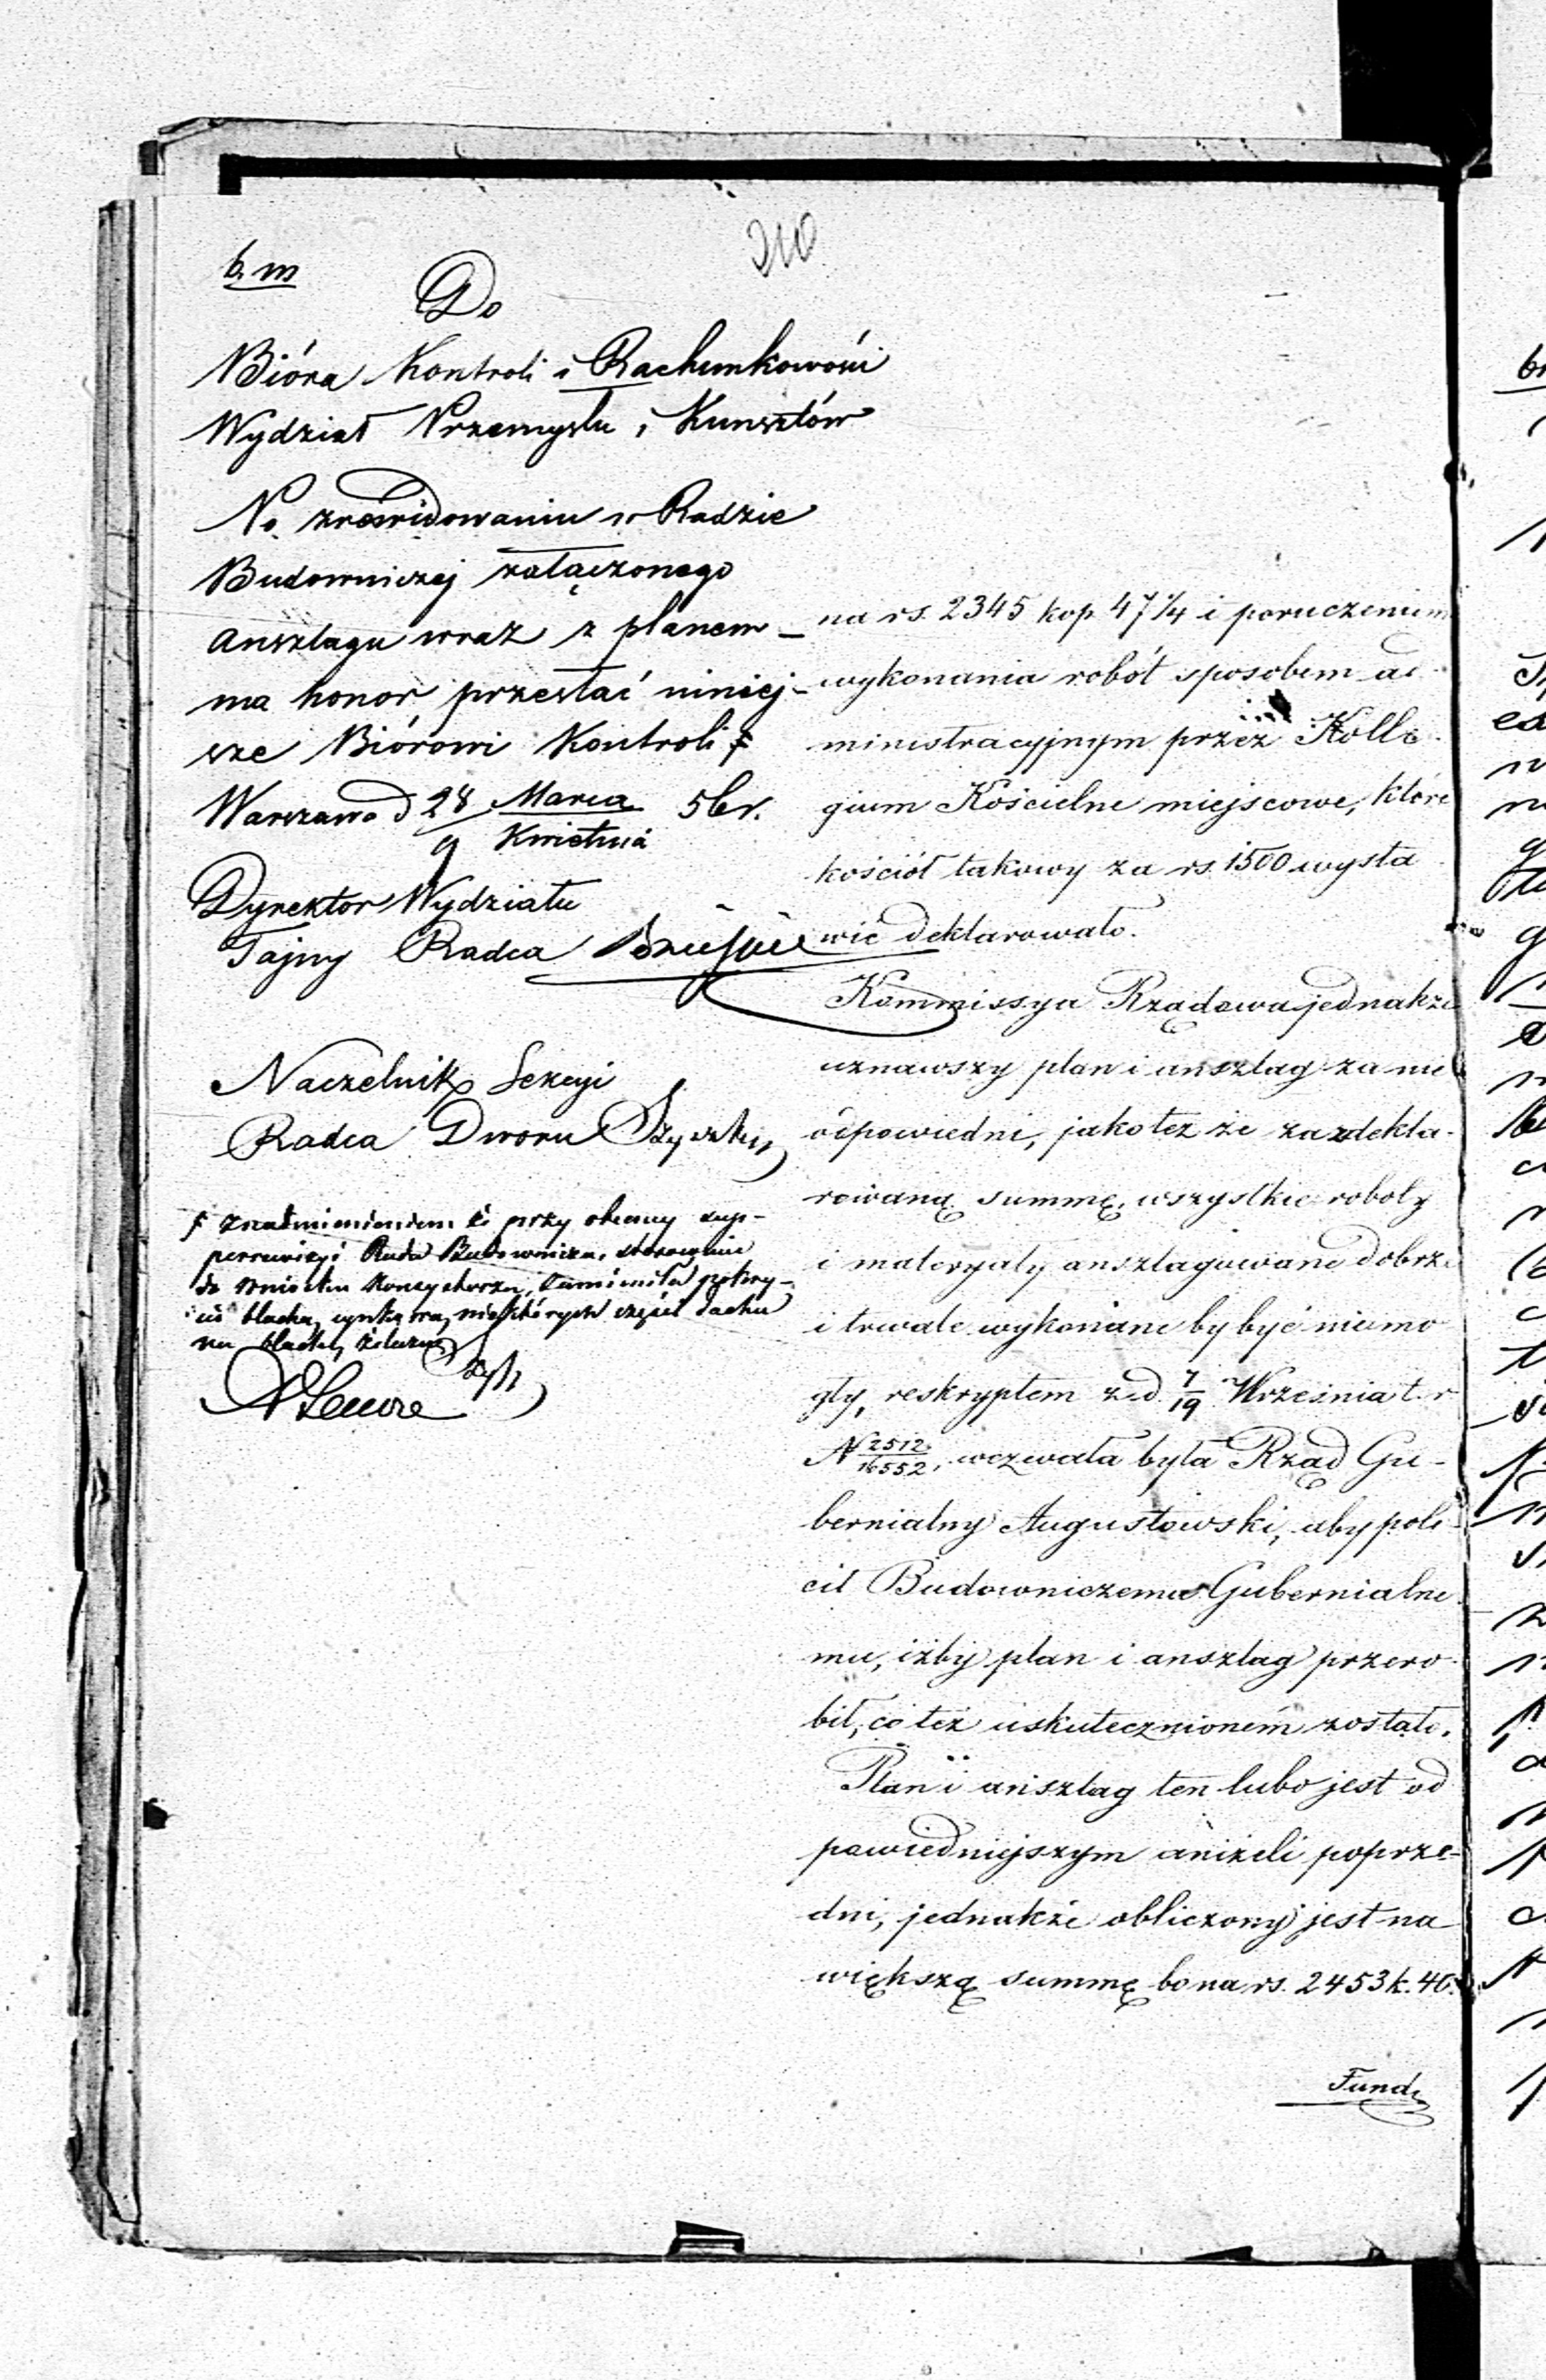 210
b. m
Do
Bióra Kontroli i Rachunkowości
Wydział Przemysłu i Kunsztów
Po zrewidowaniu w Radzie
Budowniczej załączonego
Anszlagu wraz z planem –
ma honor przesłać niniej-
sze Biórowi Kontroli
Warszawa d 28/9 Marca/Kwietnia 56 r.
Dyrektor Wydziału
Tajny Radca
Naczelnik Sekcyi
Radca Dworu
z nadmienieniem że przy obecnej sup-
perrewizyi Rada Budownicza, stosownie
do wniosku Konsystorza, zamieniła pokry-
cie blachą cynkową niektórych części dachu
na blachę żelazną
na rs. 2345 kop 47 1/4 i poruczeniem
wykonania robót sposobem ad-
ministracyjnym przez Kolle-
gium Kościelne miejscowe, które
kościół takowy za rs. 1500 wysta
wić deklarowało.
Kommissya Rządowa jednakże
uznawszy plan i anszlag za nie
odpowiedni, jako też że za zdekla-
rowaną summę, wszystkie roboty
i materyały anszlagowane dobrze
i trwale wykonane by być niemo
gły, reskryptem z d. 7/19 Września t. r
N 2512/16552, wezwała była Rząd Gu-
bernialny Augustowski, aby pole-
cił Budowniczemu Gubernialne
mu, iżby plan i anszlag przero-
bił, co też uskutecznionem zostało.
Plan i anszlag ten lubo jest od
powiedniejszym aniżeli poprze-
dni, jednakże obliczony jest na
większą summę bo na rs. 2453 k. 40.
Fund